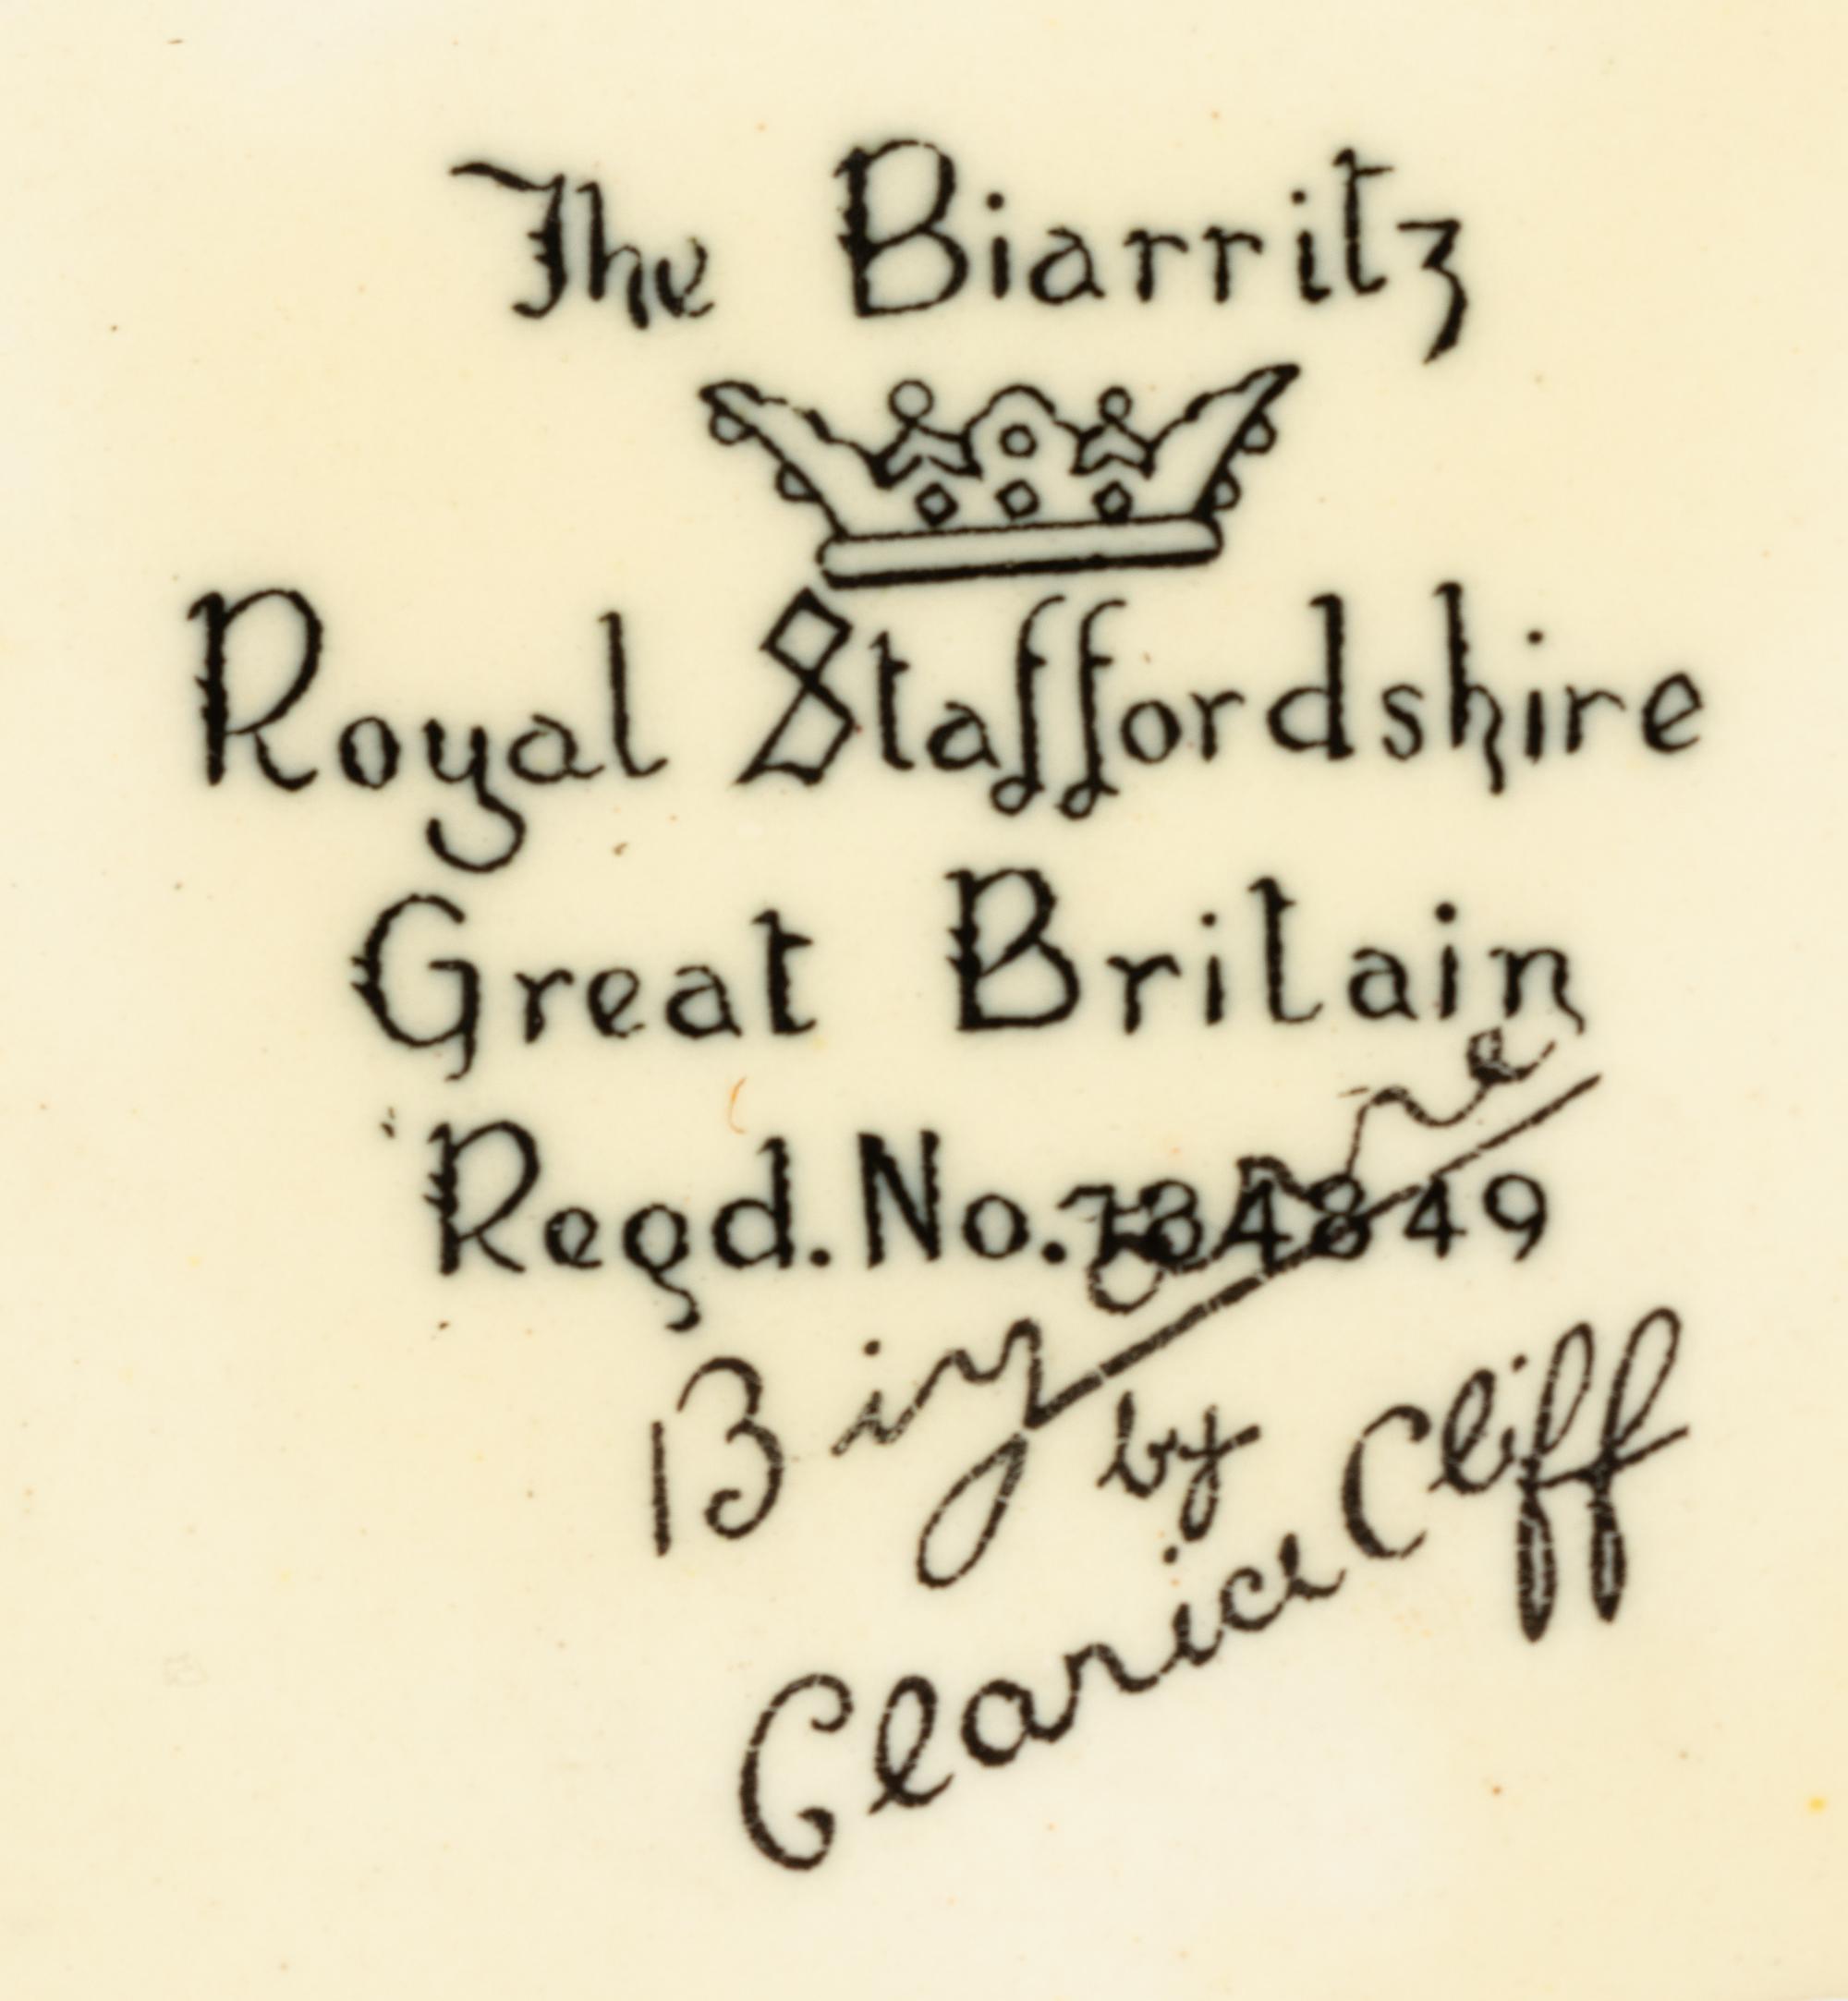 The Biarritz
Royal Staffordshire
Great Britain
Regd. No. 784849
Bizarre
by
Clarice Cliff